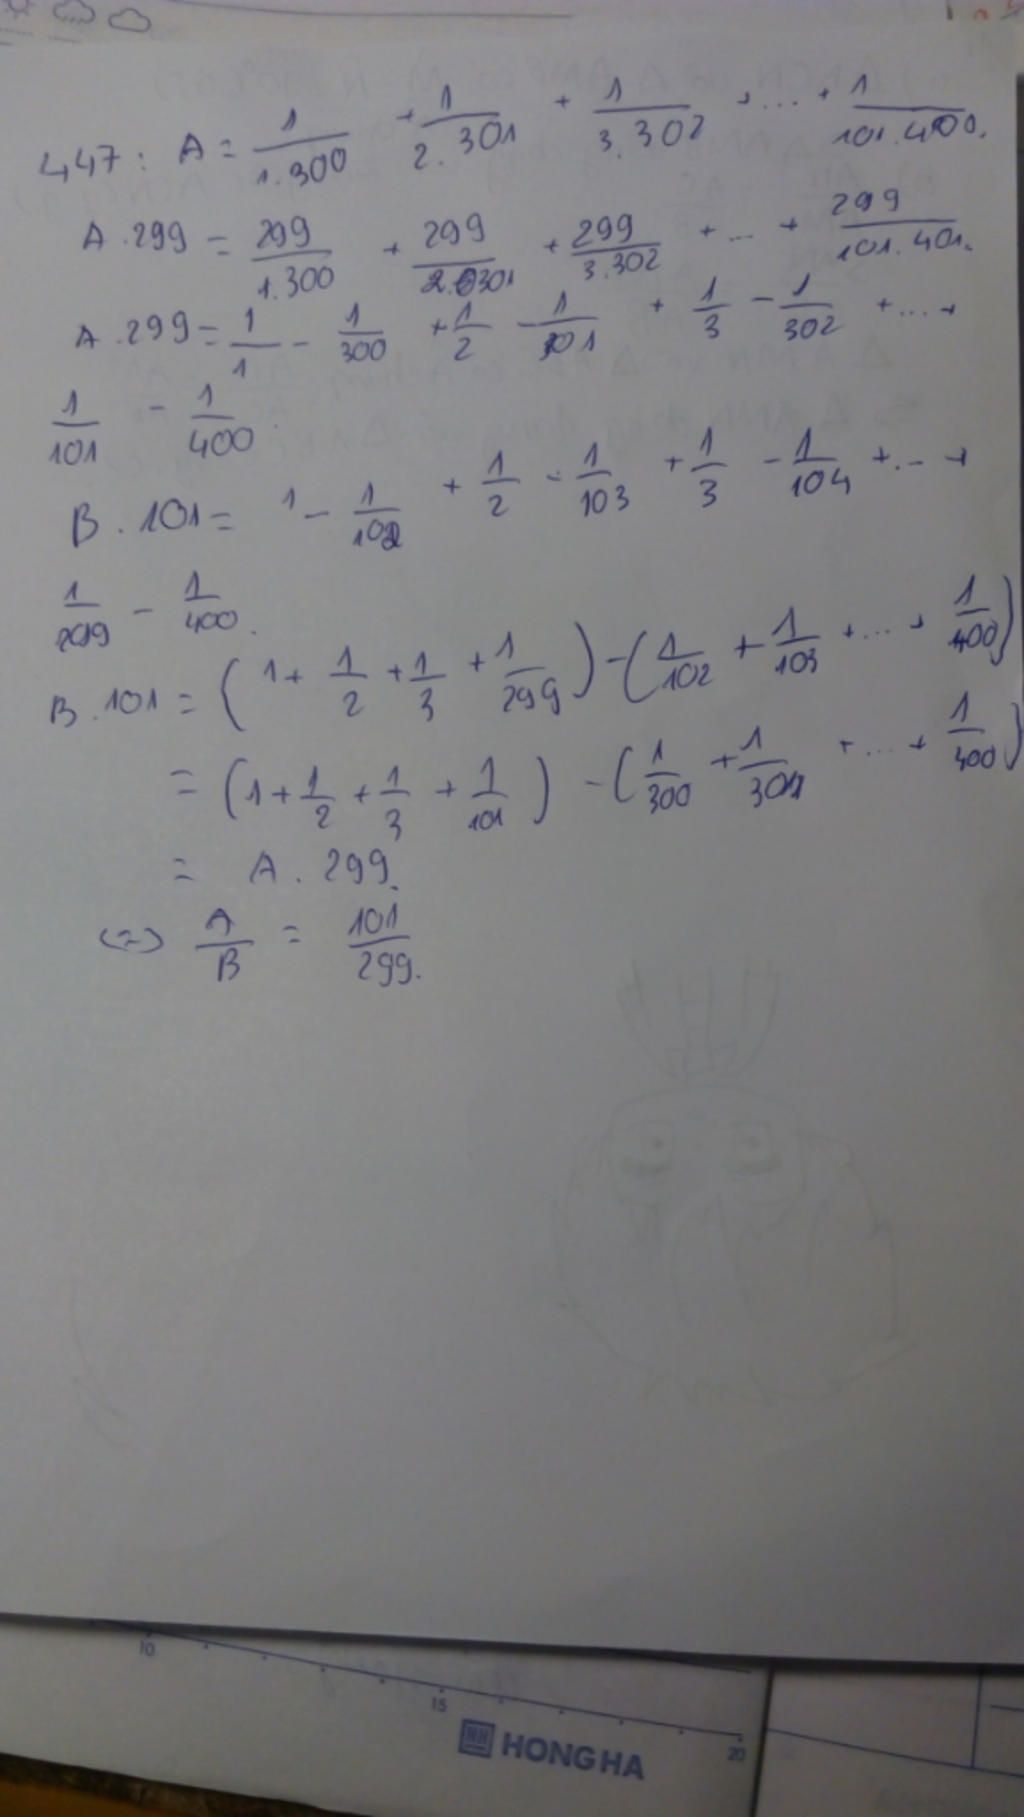 447: A = 1/1.300 + 1/2.301 + 1/3.302 + ... + 1/101.400.
A.299 = 299/1.300 + 299/2.301 + 299/3.302 + ... + 299/101.401.
A.299 = 1/1 - 1/300 + 1/2 - 1/301 + 1/3 - 1/302 + .... +
1/101 - 1/400.
B.101 = 1 - 1/102 + 1/2 - 1/103 + 1/3 - 1/104 + ... +
1/299 - 1/400.
B.101 = (1 + 1/2 + 1/3 + 1/299) - (1/102 + 1/103 + ... + 1/400)
= (1 + 1/2 + 1/3 + 1/101) - (1/300 + 1/301 + ... + 1/400)
= A.299.
(=) A/B = 101/299.
10 15 20
HONG HA